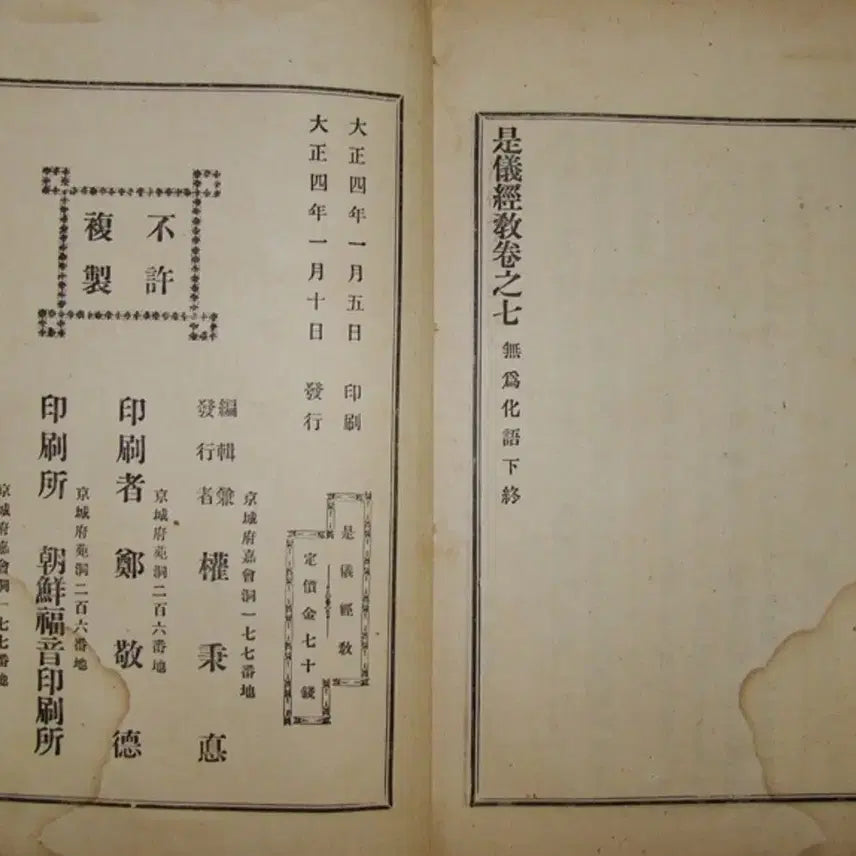 是儀經教卷之七 無爲化語下終
大正四年一月五日 印刷
大正四年一月十日 發行
是儀經教
定價金七十錢
不許
複製
京城府嘉會洞一七七番地
編輯兼
發行者 權秉悳
京城府苑洞二百六番地
印刷者 鄭敬德
京城府苑洞二百六番地
印刷所 朝鮮福音印刷所
京城府嘉會洞一七七番地